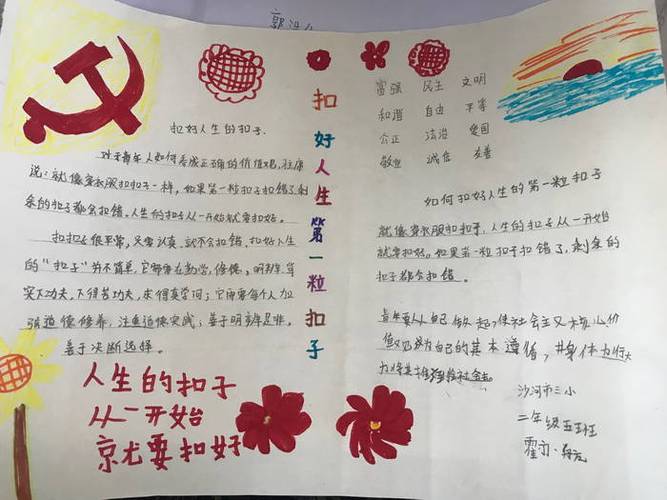 扣
好
人
生
第
一
粒
扣
子
扣好人生的扣子.
对于青年人如何养成正确的价值观，
说：就像穿衣服扣扣子一样，如果第一粒扣子扣错了剩
余的扣子都会扣错。人生的扣子从一开始就要扣好。
扣扣子很平常，只要认真，就不会扣错，扣好人生
的“扣子”并不简单，它需要在勤学，修德，明辨，笃
实下功夫，下得苦功夫，求得真学问；它需要每个人加
强道德修养，注重道德实践；善于明辨是非，
善于决断选择。
人生的扣子
从一开始
京尤要扣好
富强 民主 文明
和谐 自由 平等
公正 法治 爱国
敬业 诚信 友善
如何扣好人生的第一粒扣子
就像穿衣服扣扣子，人生的扣子从一开始
就要扣好。如果第一粒扣子扣错了，剩余的
扣子都会扣错。
青年要从自己做起，使社会主义核心价
值观成为自己的基本遵循，并身体力行大
力将其推 社会去。
沙河市三小
二年级五班
霍